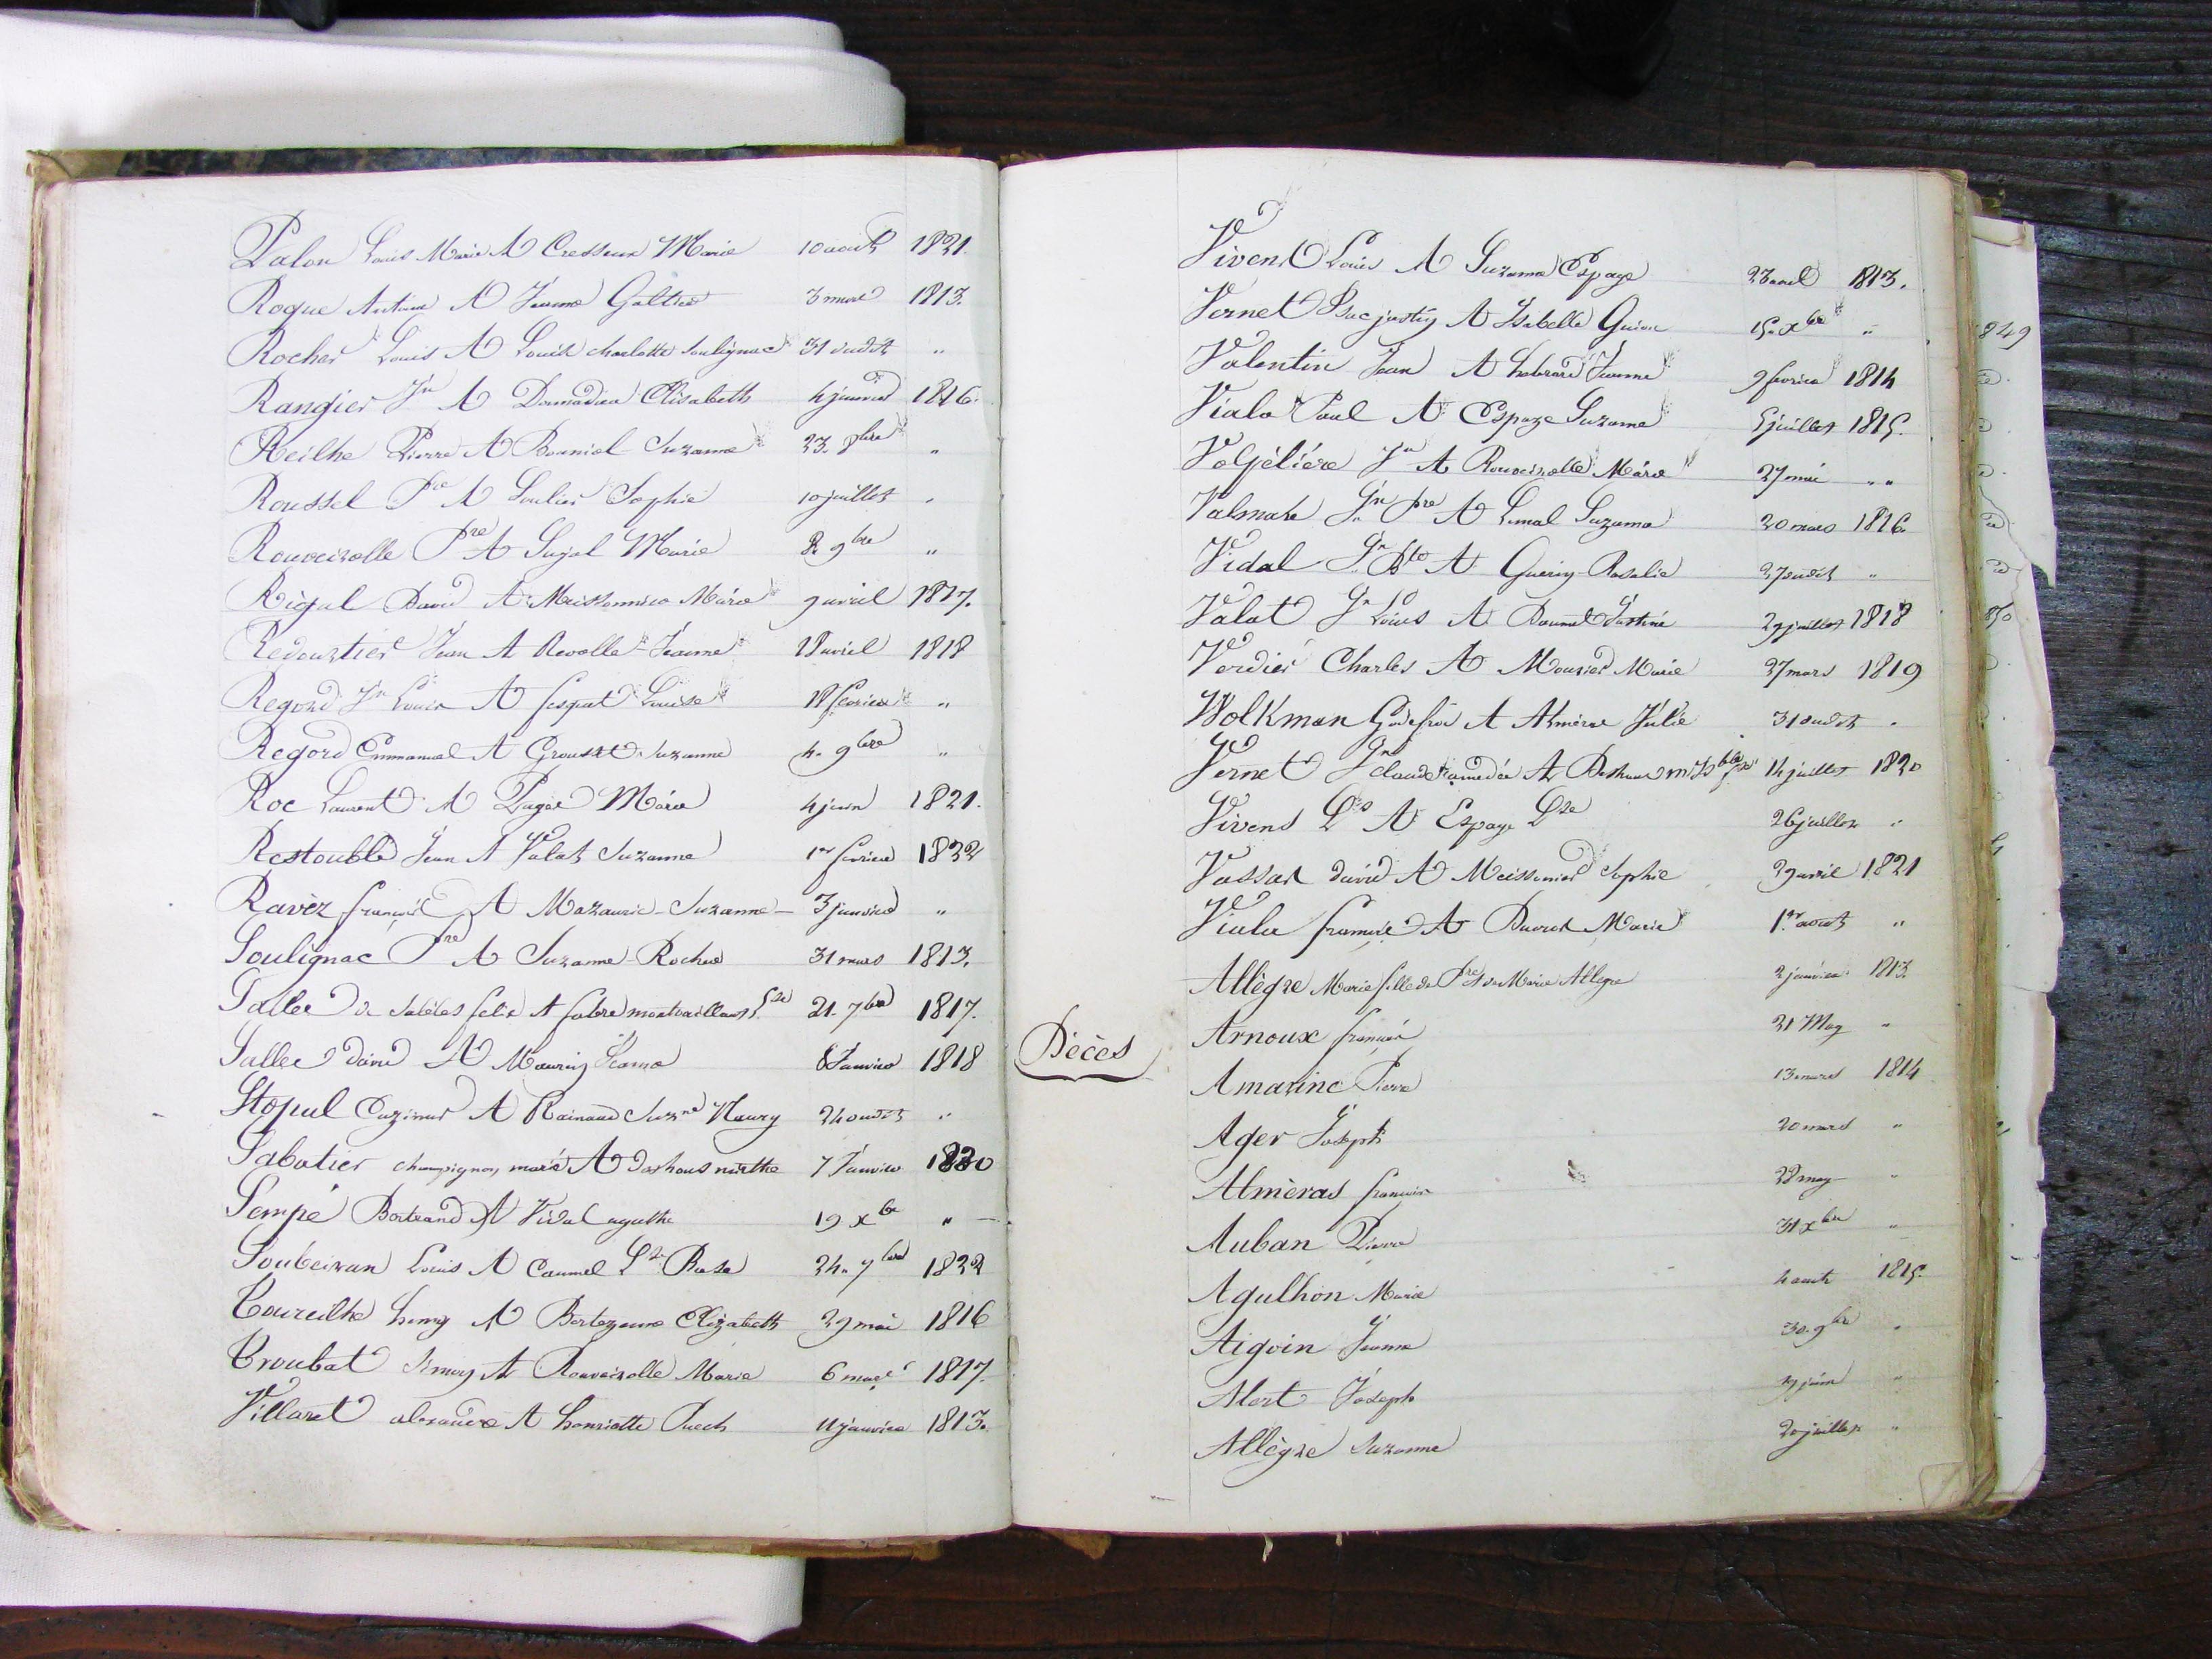 Palon Louis Marie A Cresseux Marie 10 août 1821.
Roque Antoine A Jeanne Galtier 3 mars 1813.
Rocher Louis A Louise charlotte Soulignac 31 dudit "
Rangier Jn A Doumadieu Elisabeth 4 janvier 1816.
Reilhe Pierre A Bouniol Suzanne 23. 8bre "
Roussel Pre A Soulier Sophie 10 juillet "
Rouveirolle Pre A Sujol Marie 8. 9bre "
Rigal David A Meissonnier Marie 9 avril 1817.
Redourtier Jean A Revolle Jeanne 18 avril 1818
Regord Jn Louis A fesquet Louise 18 février "
Regord Emmanuel A Grousset Suzanne 4. 9bre "
Roc Laurent A Pagée Marie 4 juin 1821.
Restouble Jean A Valat Suzanne 1er février 1822
Ravèz françois A Mazauric Suzanne 3 janvier "
Soulignac Pre A Suzanne Rocher 31 mars 1813.
Salles de Salèles felix A fabre montvaillant 21. 7bre 1817.
Salles david A Maurin Jeanne 8 Janvier 1818
Stopul Cazimir A Rainaud Suzne Naury 24 dudit "
Sabatier champignon marie A dashous marthe 7 Janvier 1820
Sempé Bertrand A Vidal agathe 19 xbre "
Soubeiran Louis A Caumel Lse Rose 24. 7bre 1822
Toureilhe henry A Bertezenne Elizabeth 29 mai 1816
Troubat Rémoy A Rouveirolle Marie 6 mars 1817.
Villaret alexandre A henriette Puech 11 janvier 1813.
Vivent Louis A Suzanne Espaze 23 avril 1813.
Vernet Isac justin A Isabelle Guion 15. xbre "
Valentin Jean A Labrare Jeanne 9 février 1814
Viala Paul A Espaze Suzanne 5 juillet 1815.
Volpélière Jn A Rouveirolle Marie 27 mai "
Valmale Jn Pre A Lamal Suzanne 20 mars 1816.
Vidal Jn Bte A Guérin Rosalie 27 dudit "
Valat Jn Louis A Daumet Justine 29 juillet 1818
Verdier Charles A Mourier Marie 27 mars 1819
Wolkman Godefroi A Alméras Julie 31 dudit "
Vernet Jn claude amédée A Deshous 14 juillet 1820
Vivens Ls A Espaze Lse 26 juillet "
Vassas david A Meissonier Sophie 29 avril 1821
Viala françois A Durand Marie 1er août "
Décès
Allègre Marie fille de Pre et de Marie Allegre 2 janvier 1813.
Arnoux françois 21 May "
Amarine Pierre 13 mars 1814
Ager Joseph 20 mars "
Almèras françoise 28 may "
Auban Pierre 31 xbre "
Agulhon Marie 4 août 1815.
Aigoin Jeanne 30. 9bre "
Alort Joseph 29 juin "
Allègre Suzanne 20 juillet "
849
850